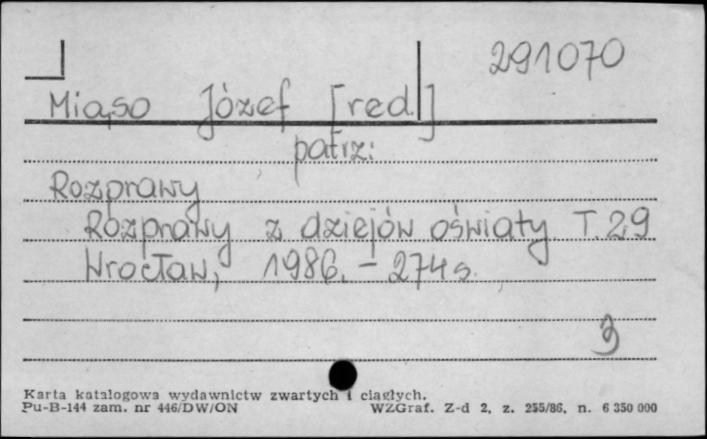 291070
Miąso Józef [red.]
patrz:
Rozprawy
Rozprawy z dziejów oświaty T. 29
Wrocław, 1986. - 274 s.
Karta katalogowa wydawnictw zwartych i ciągłych.
Pu-B-144 zam. nr 446/DW/ON WZGraf. Z-d 2, z. 255/86, n. 6 350 000